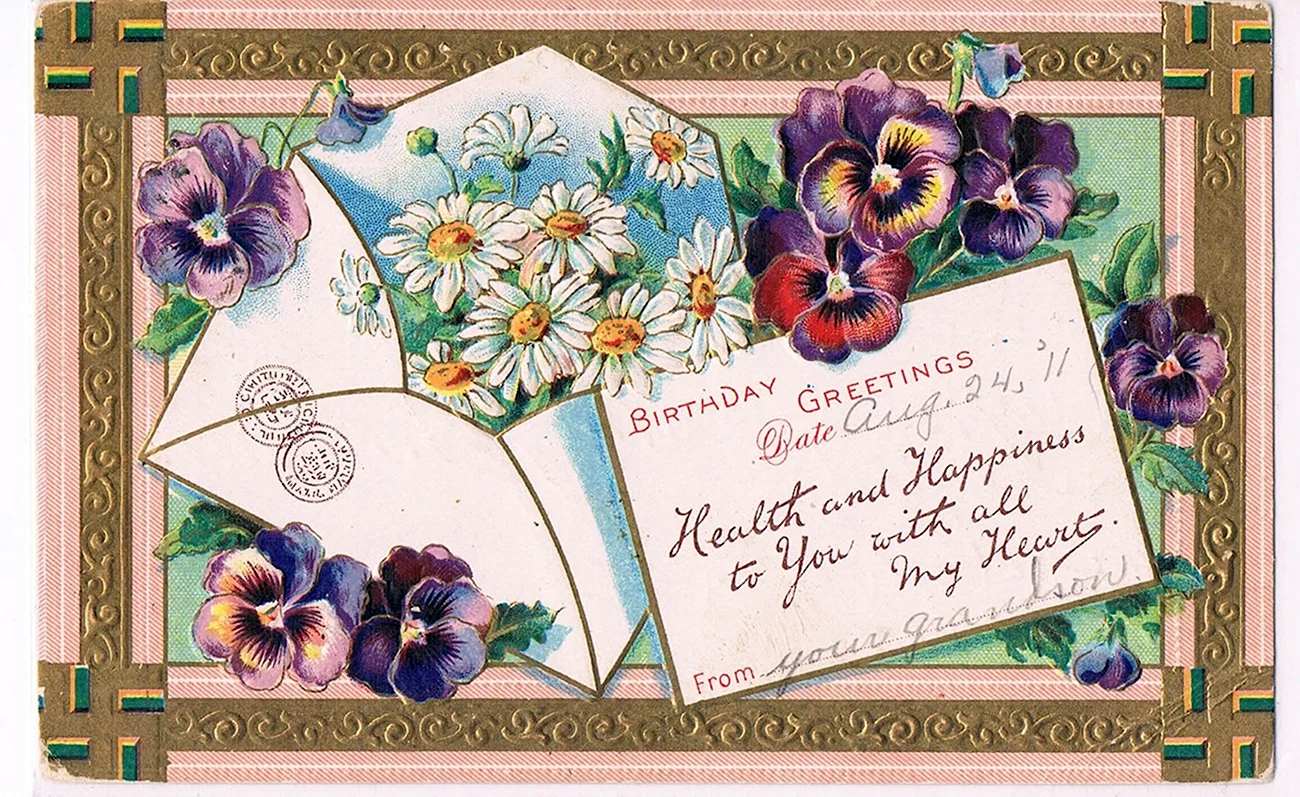 BIRTHDAY GREETINGS
Date Aug. 24, '11
Health and Happiness
to You with all
My Heart.
From your grandson.